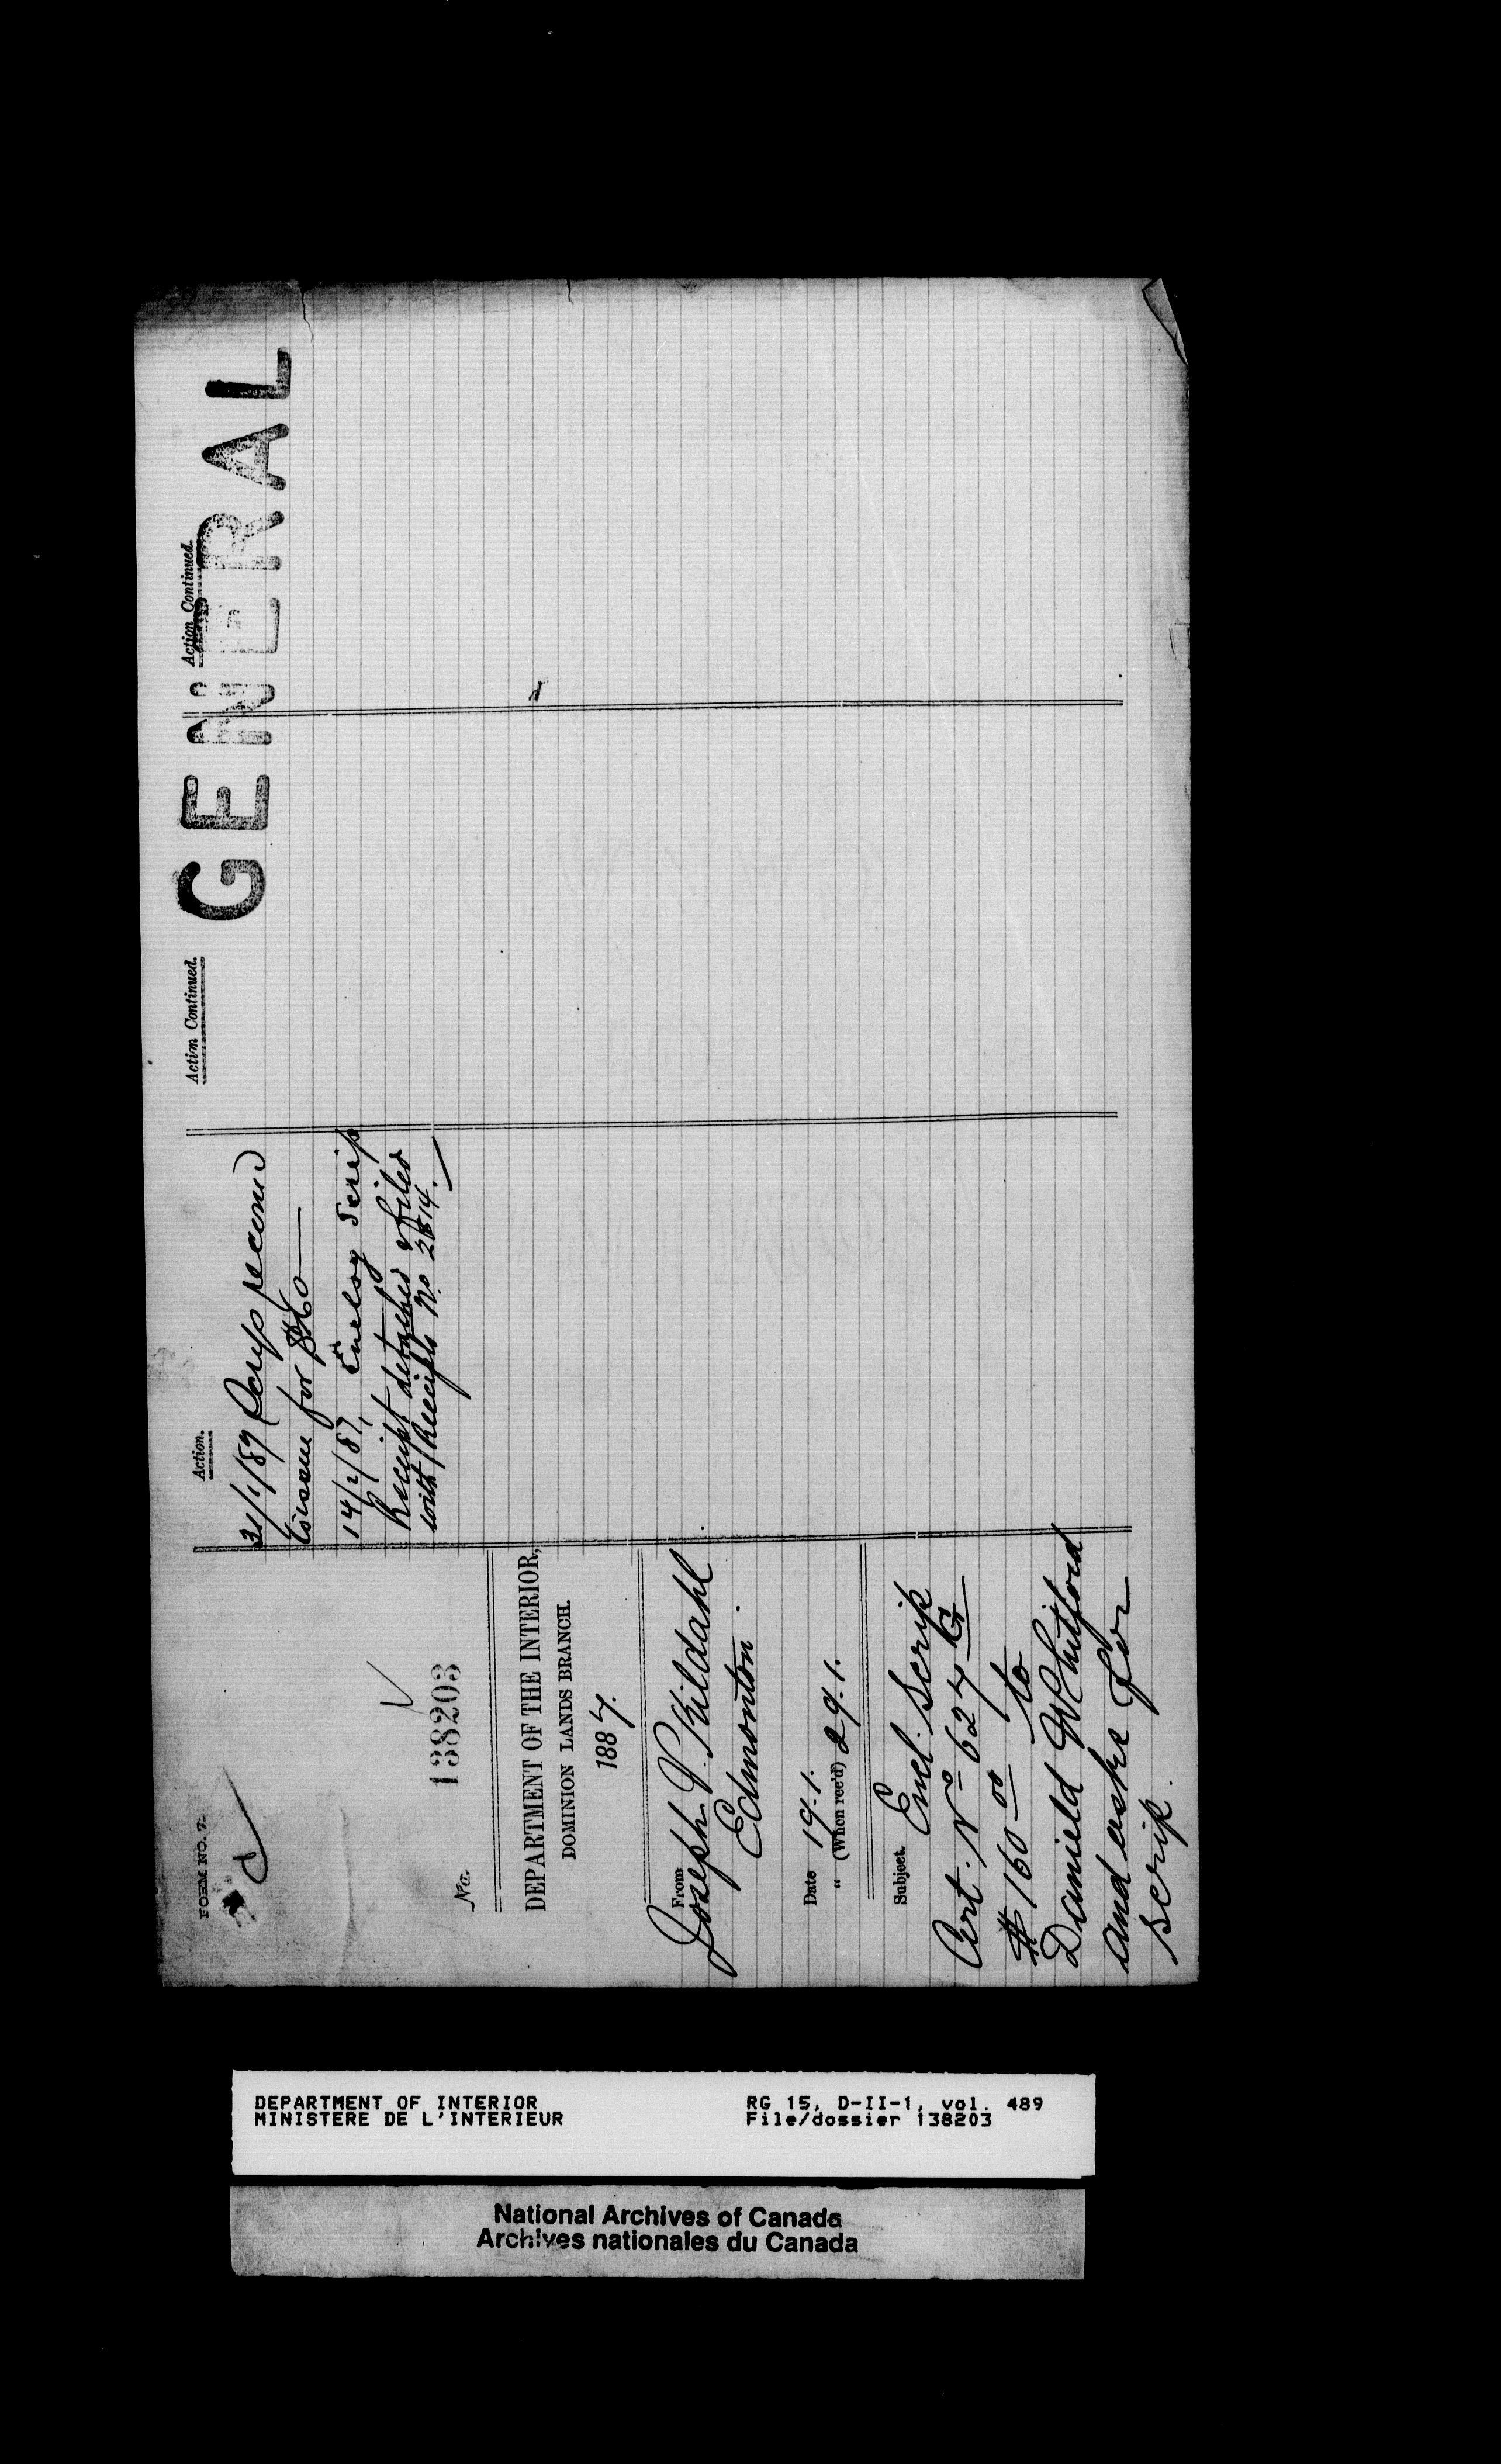 FORM NO. 7.
No. 138203
DEPARTMENT OF THE INTERIOR,
DOMINION LANDS BRANCH.
1887.
From
Joseph P. Kildahl
Edmonton.
Date 19.1.
" (When rec'd) 29.1.
Subject. Encl. Scrip
Cert. No 627 G
$160 00 to
Daniel Whitford
and asks for
scrip.
Action.
31/1/87 Scrip
issue for
14/2/87, Enclsg Scrip
Receipt detached & filed
with Receipts No 2814.
Action Continued.
Action Continued.
GENERAL
DEPARTMENT OF INTERIOR
MINISTERE DE L'INTERIEUR
RG 15, D-II-1, vol. 489
File/dossier 138203
National Archives of Canada
Archives nationales du Canada